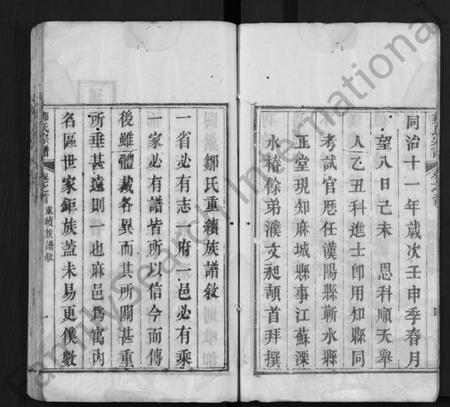 同治十一年歲次壬申季春月
望八日己未　恩科順天舉
人乙丑科進士即用知縣同
考試官歷任漢陽縣蘄水縣
正堂現知麻城縣事江蘇溧
水椿餘弟濮文昶頓首拜撰
鄒氏重續族譜敘
一省必有志一府一邑必有乘
一家必有譜皆所以信今而傳
後雖體裁各異而其所關甚重
所垂甚遠則一也麻邑為寓內
名區世家鉅族蓋未易更僕數
鄒氏宗譜
重續族譜敘
一
FamilySearch International